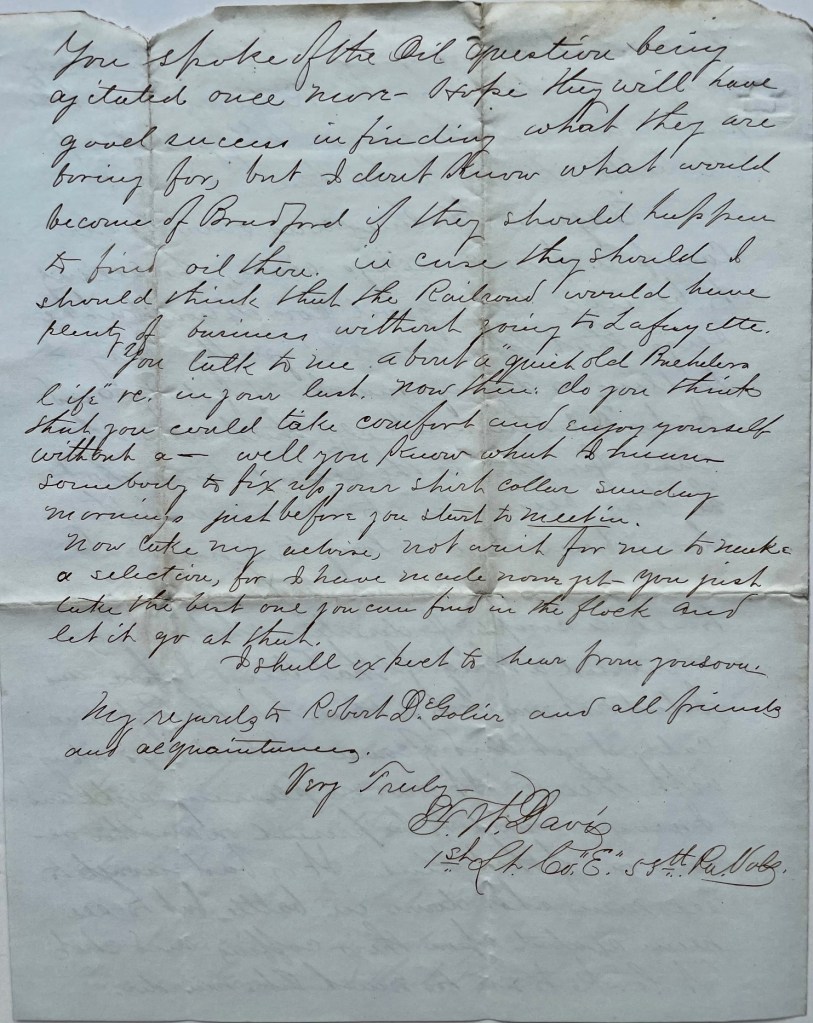 You spoke of the Oil question being
agitated once more - Hope they will have
good success in finding what they are
boring for, but I dont know what would
become of Bradford if they should happen
to find oil there. in case they should I
should think that the Railroad would have
plenty of business without going to Lafayette.
You talk to me about a "quiet old Bachelors
life" &c. in your last. Now then: do you think
that you could take comfort and enjoy yourself
without a — well you know what I mean
somebody to fix up your shirt collar sunday
mornings just before you start to meetin.
Now take my advise, not wait for me to make
a selection, for I have made none yet - You just
take the best one you can find in the flock and
let it go at that.
I shall expect to hear from you soon.
My regards to Robert DeGolier and all friends
and acquaintances.
Very Truly
W. Davis
1st Lt. Co. "E." 58th. Pa. Vols.